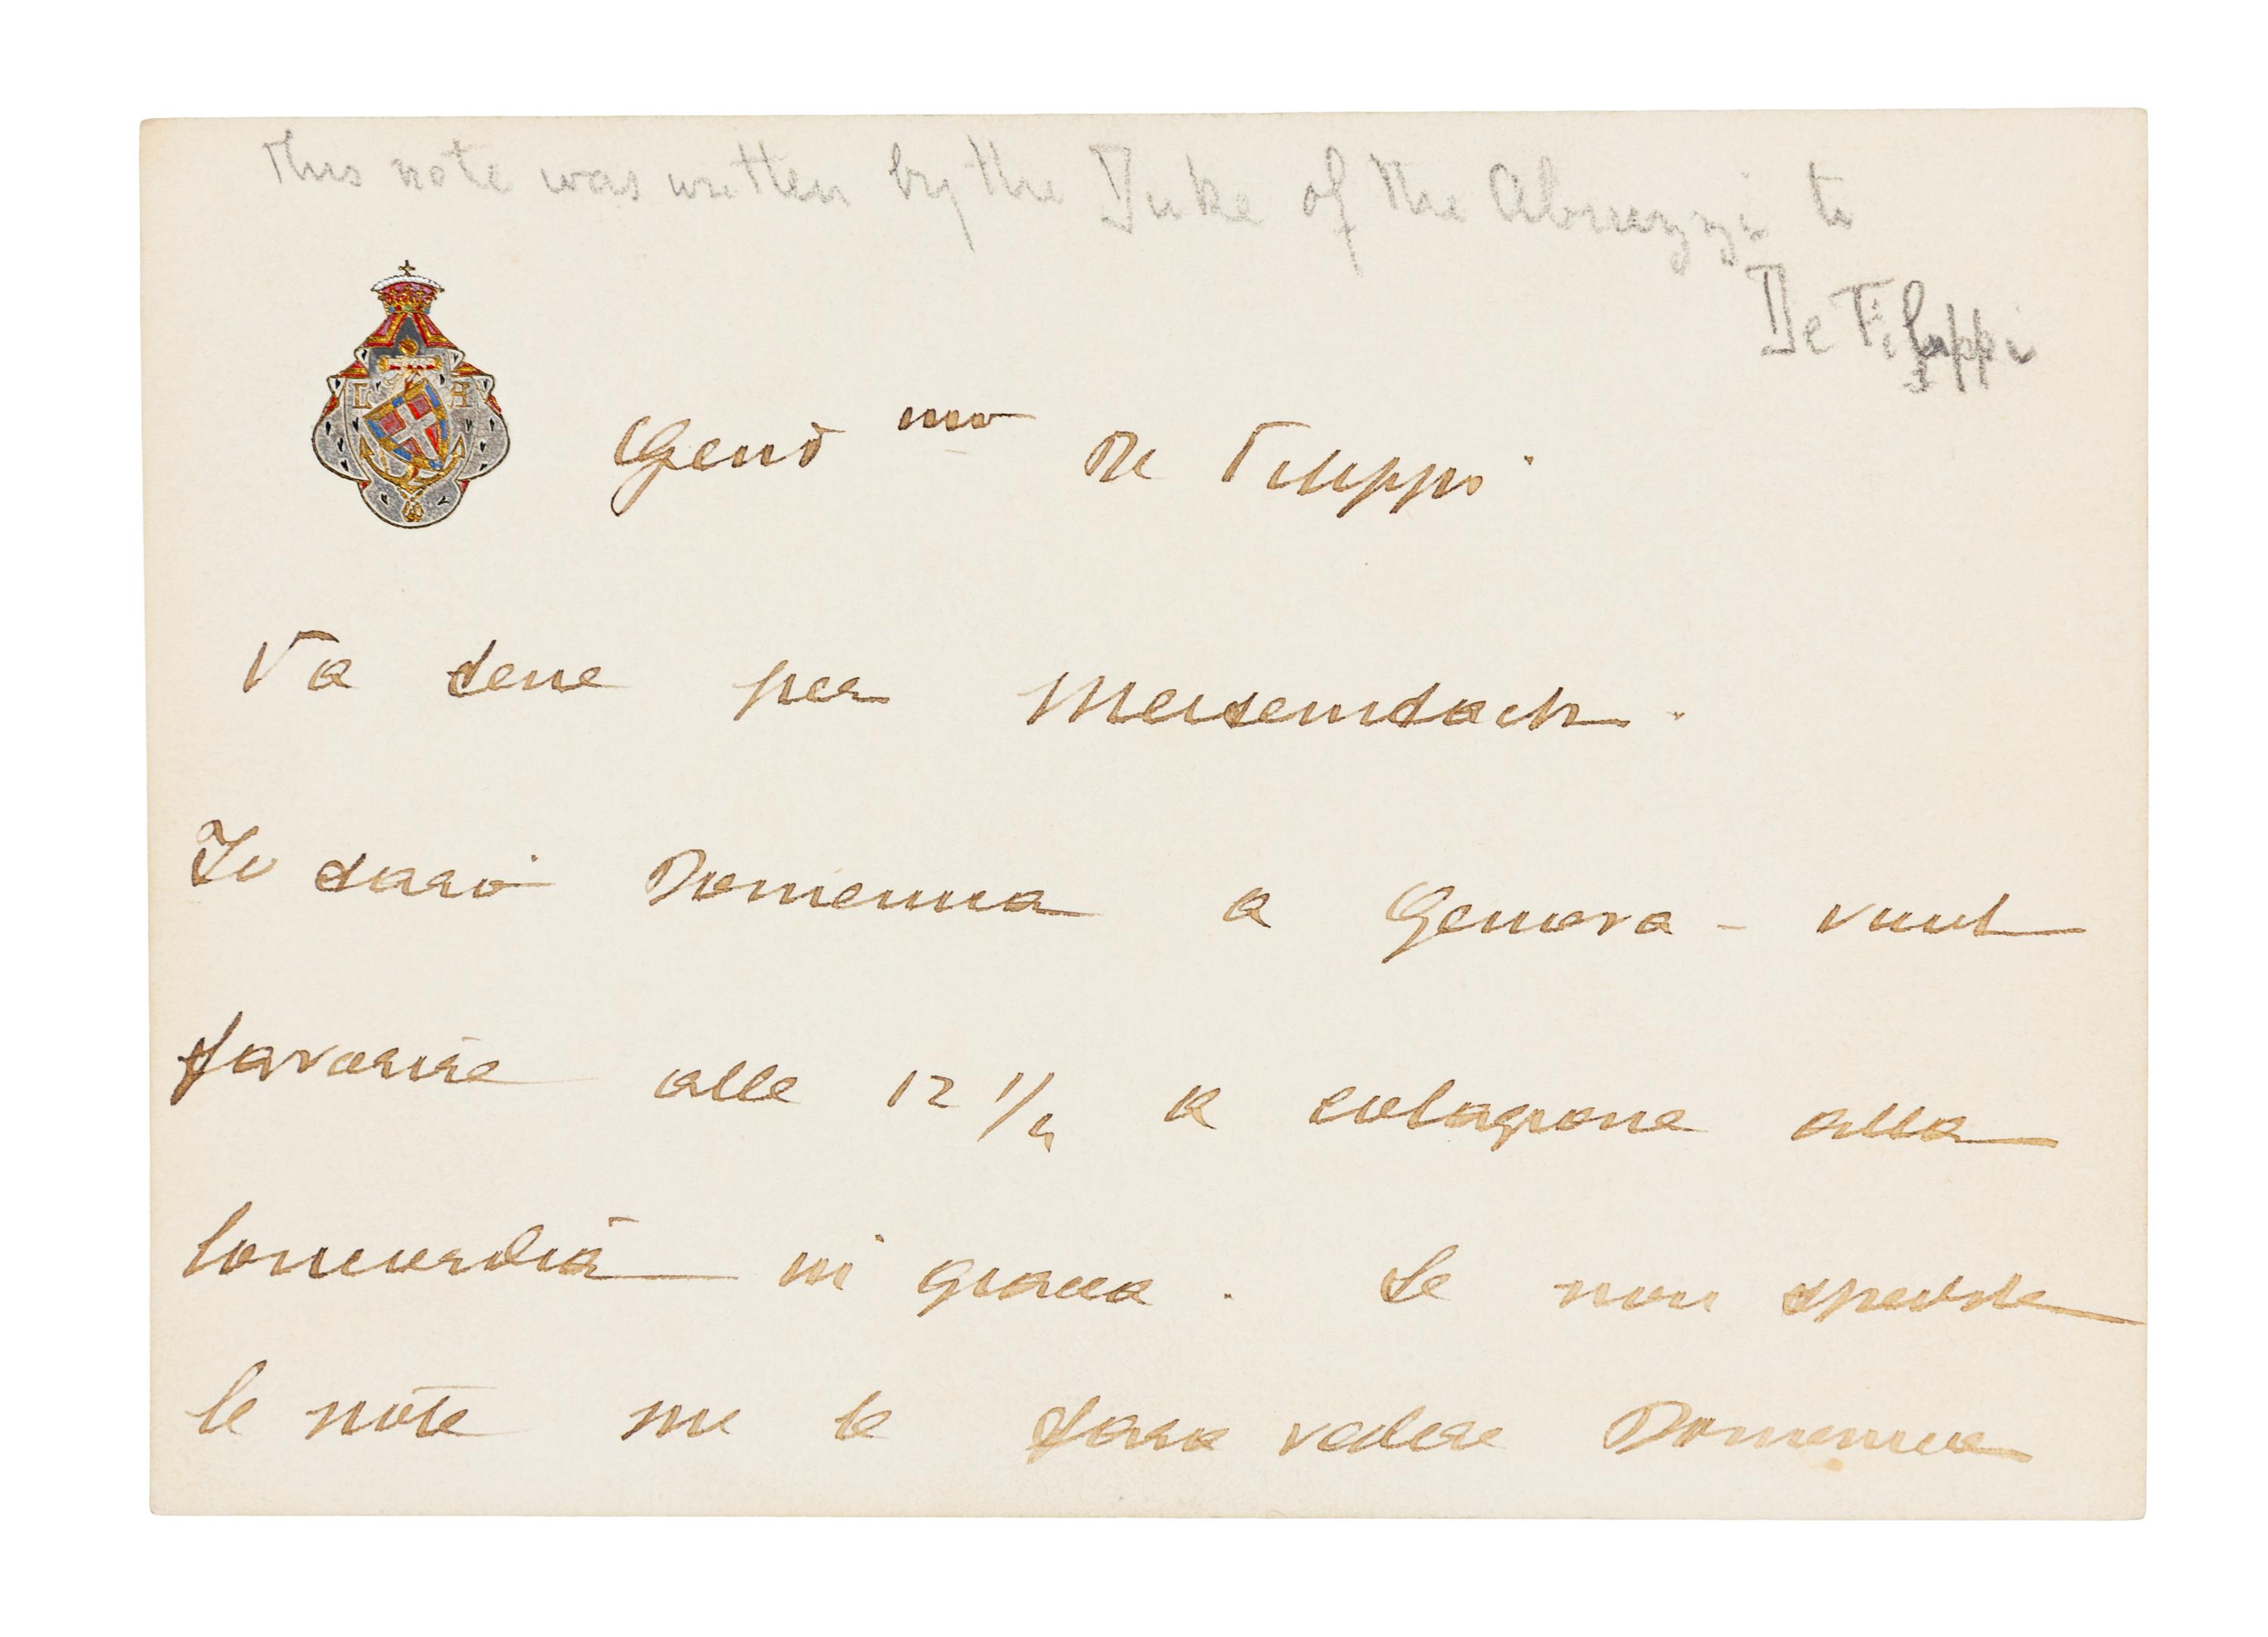 This note was written by the Duke of the Abruzzi to
De Filippi
L A
Gent mo De Filippi
Va bene per
Io sarò Domenica a Genova - vuol
favorire alle 12 1/4 a colazione alla
in Se non spedite
le note me le fara vedere Domenica